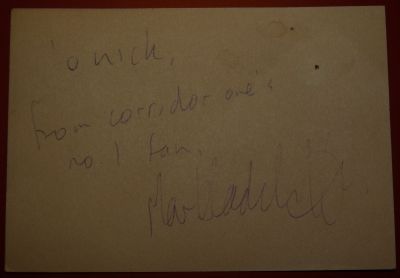 'o nick,
from corridor one's
no. 1 fan.